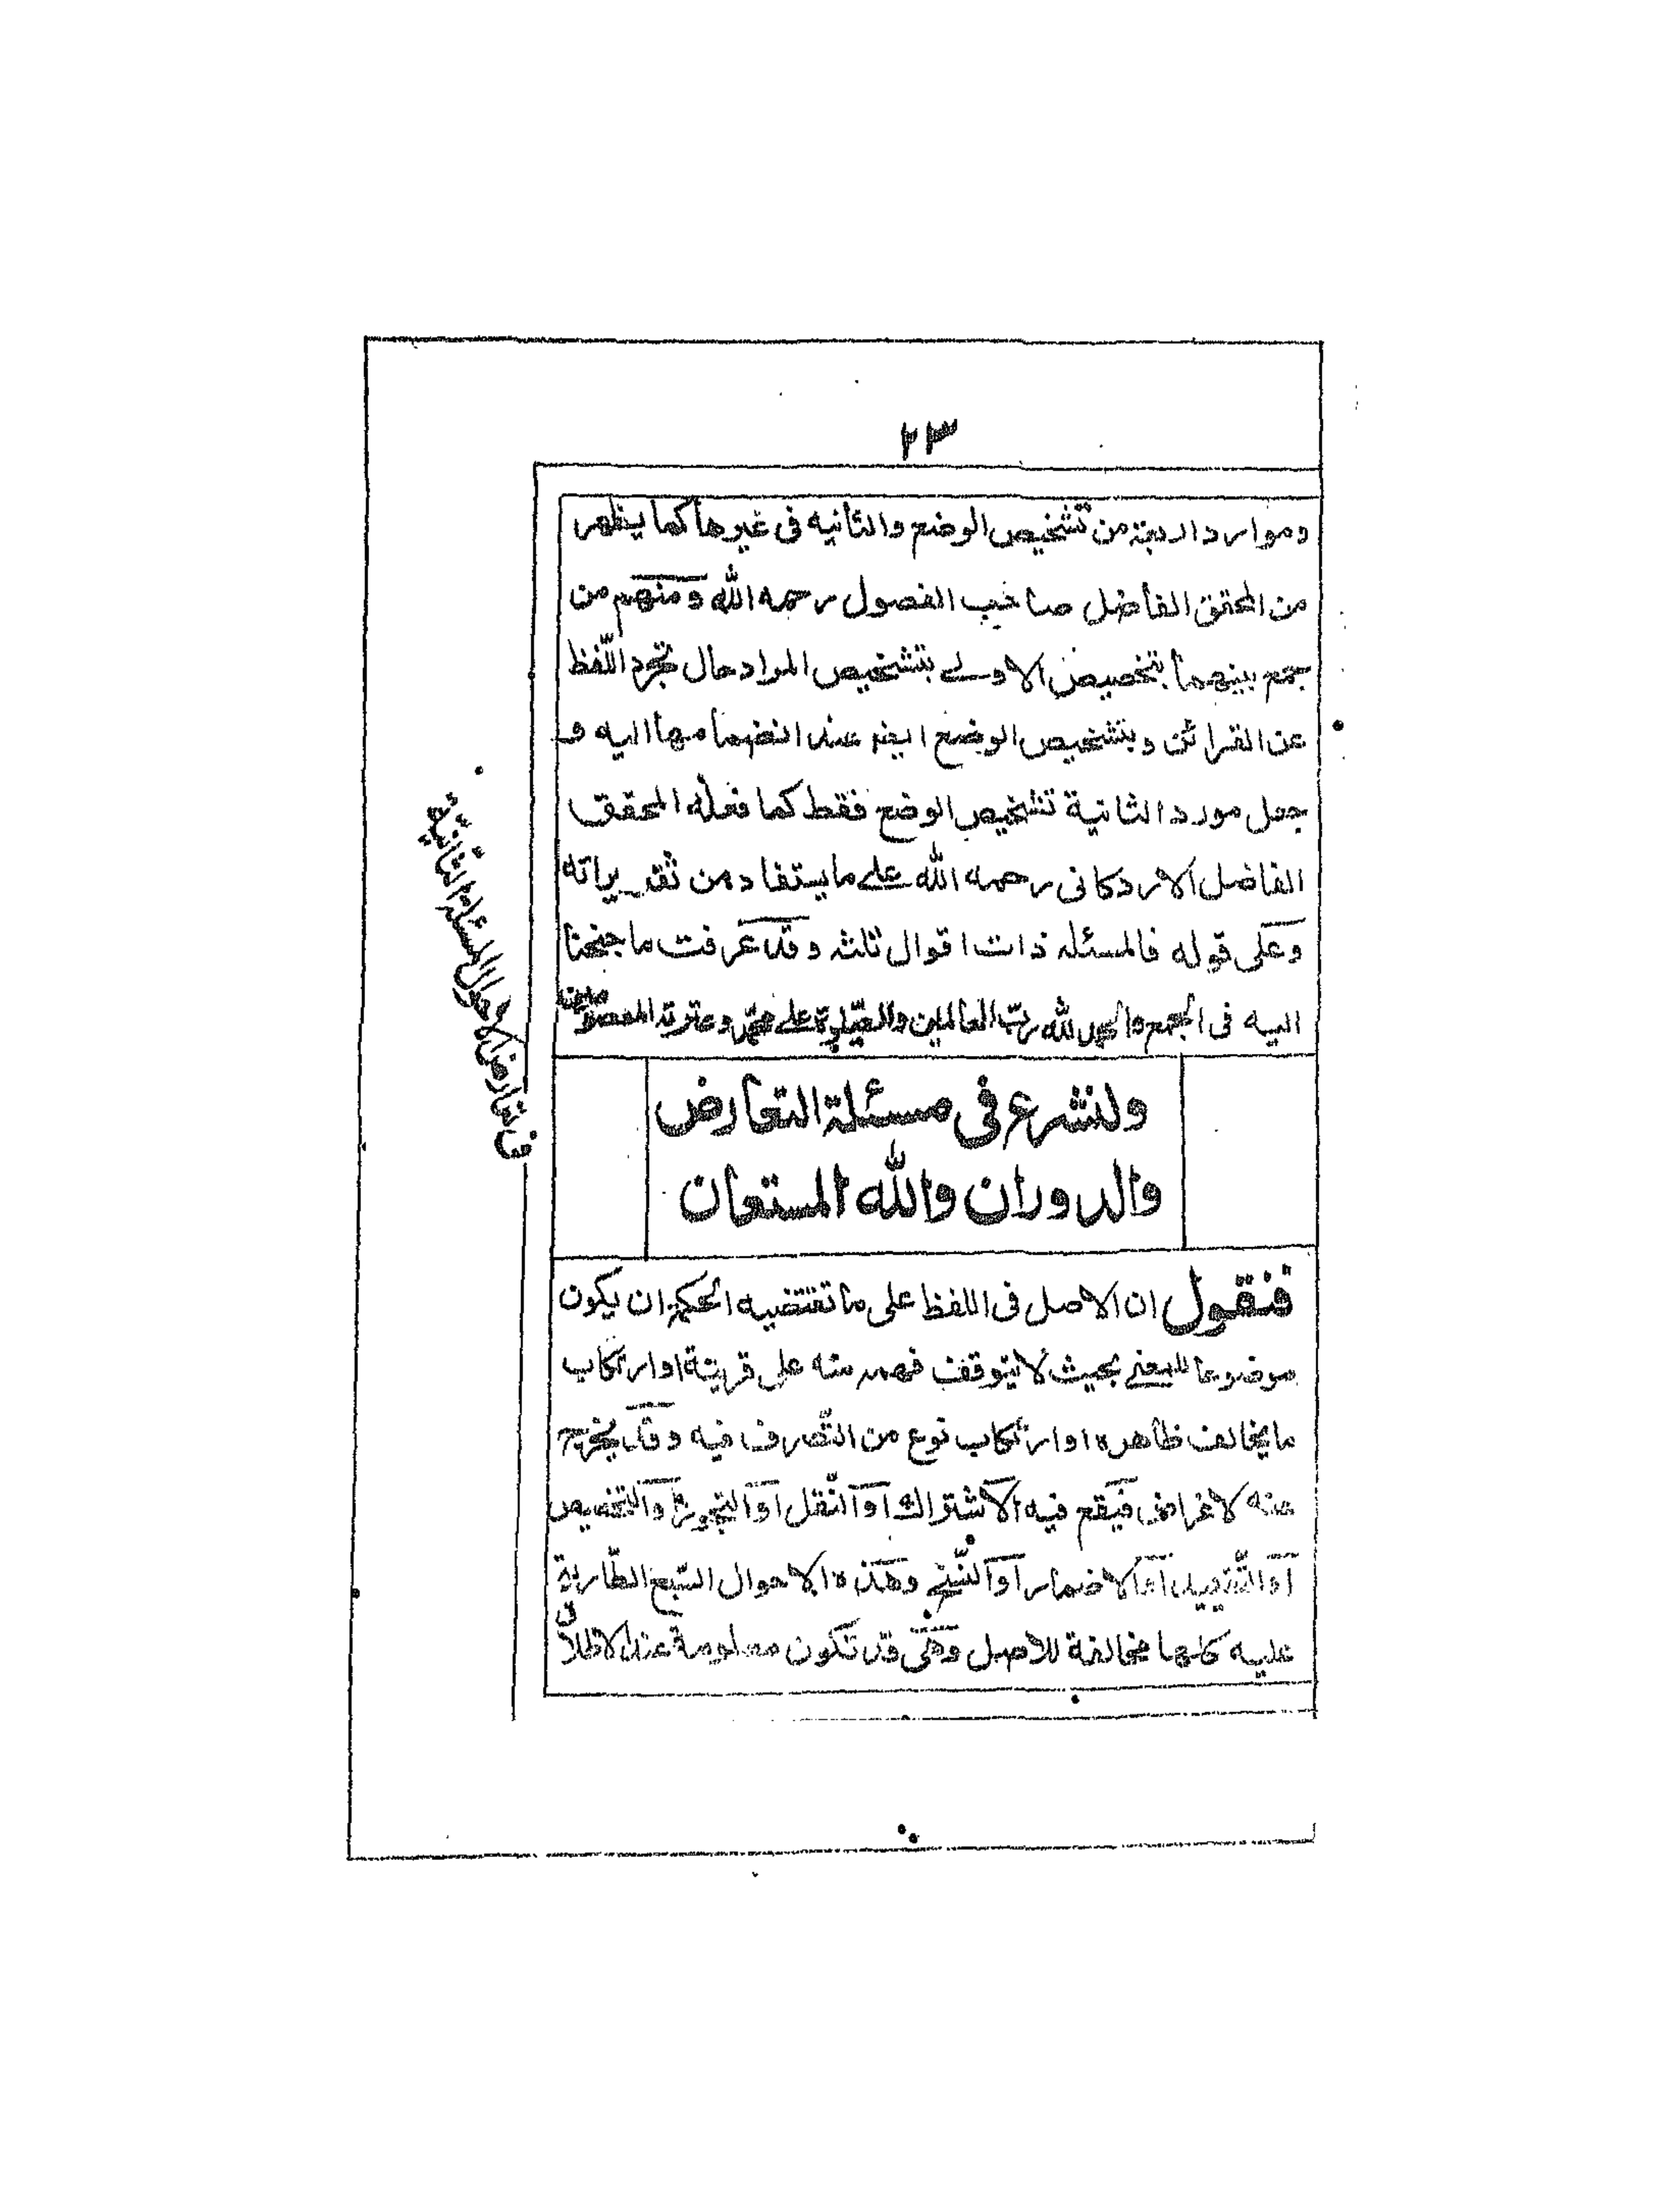 ٢٣
وموارد اربعة من تشخيص الوضع والثانيه فى غيرها كما يظهر
من المحقق الفاضل صاحب الفصول رحمه الله ومنهم من
جمع بينهما بتخصيص الاولے بتشخيص المراد حال تجرد اللّفظ
عن القرائن وبتشخيص الوضع ايضا عند انضمامها اليه و
جعل مورد الثانية تشخيص الوضع فقط كما فعله المحقق
الفاضل الاردكانى رحمه الله علے ما يستفاد من تقريراته
وعلى قوله فالمسئله ذات اقوال ثلثه وقد عرفت ما جنحنا
اليه فى الجمع والحمد لله ربّ العالمين والصّلوة علے محمّد وعترته المعصومين
ولنشرع فى مسئلة التعارض
والدوران والله المستعان
فى تعارض الاحوال المسئلة الثانية
فنقول ان الاصل فى اللفظ على ما تقتضيه الحكمة ان يكون
موضوعا للمعنے بحيث لا يتوقف فهمه منه على قرينة او ارتكاب
ما يخالف ظاهره او ارتكاب نوع من التّصرف فيه وقد يخرج
عنه لاغراض فيقع فيه الاشتراك او النّقل او التجوز او التخصيص
او التّقييد او الاضمار او النّسخ وهذه الاحوال السّبع الطّارية
عليه كلها مخالفة للاصل وهى قد تكون معلومة عند الاطلاق